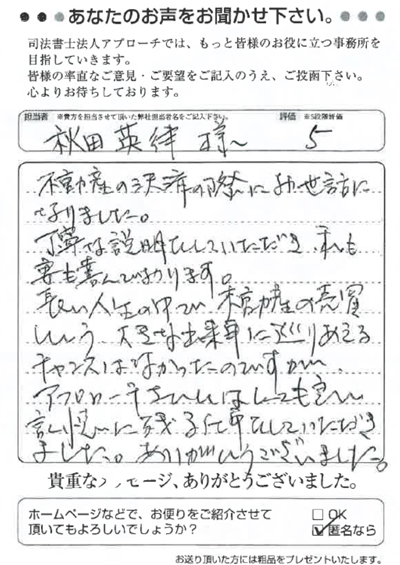 あなたのお声をお聞かせ下さい。
司法書士法人アプローチでは、もっと皆様のお役に立つ事務所を
目指していきます。
皆様の率直なご意見・ご要望をご記入のうえ、ご投函下さい。
心よりお待ちしております。
担当者 ※貴方を担当させて頂いた弊社担当者名をご記入下さい。 評価 ※5段階評価
秋田英律様へ 5
不動産の決済の際にお世話に
なりました。
丁寧な説明をしていただき、私も
妻も喜んでおります。
長い人生の中で不動産の売買
という大きな出来事に巡りあえる
チャンスはなかったのですが、
アプローチさんはとても
記憶に残る仕事をしていただき
ました。ありがとうございました。
貴重なメッセージ、ありがとうございました。
ホームページなどで、お便りをご紹介させて
頂いてもよろしいでしょうか?
□ OK
☑ 匿名なら
お送り頂いた方には粗品をプレゼントいたします。